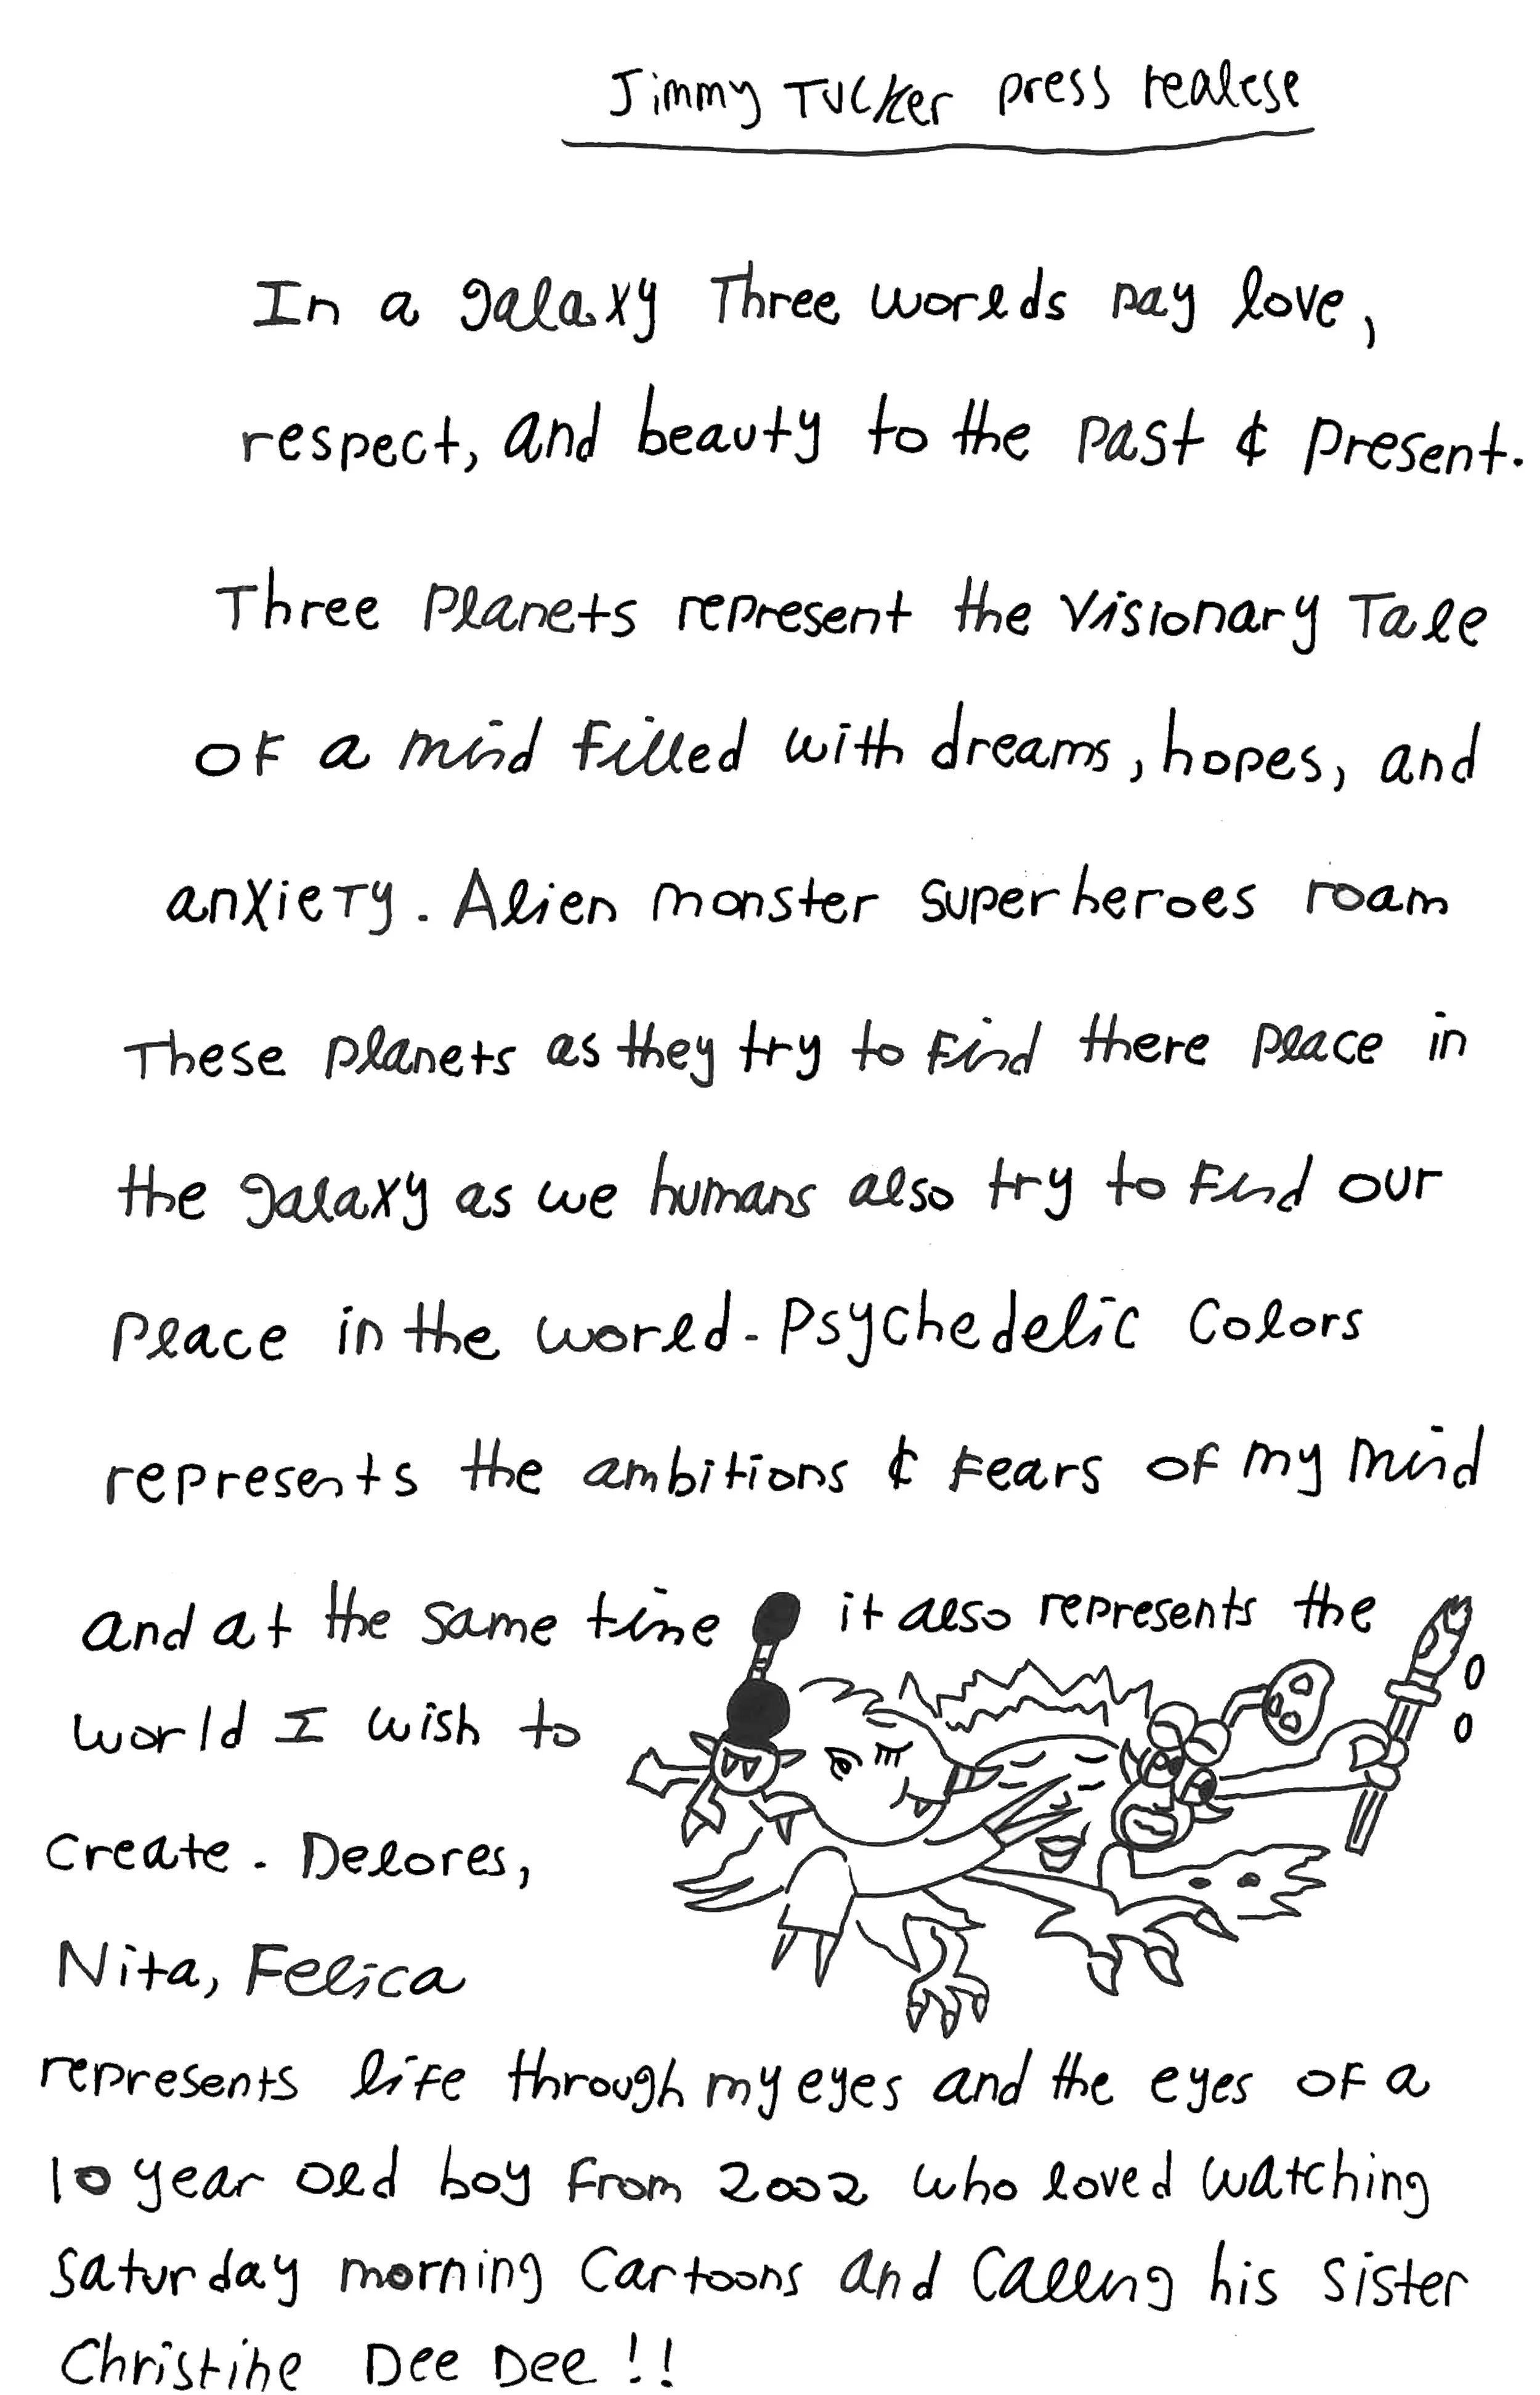 Jimmy Tucker press realese
In a galaxy Three worlds pay love,
respect, and beauty to the past & present.
Three planets represent the visionary Tale
of a mind filled with dreams, hopes, and
anxiety. Alien monster superheroes roam
These planets as they try to find there place in
the galaxy as we humans also try to find our
place in the world. Psychedelic colors
represents the ambitions & fears of my mind
and at the same time it also represents the
world I wish to
create. Delores,
Nita, Felica
represents life through my eyes and the eyes of a
10 year old boy from 2002 who loved watching
saturday morning cartoons and calling his sister
Christine Dee Dee!!